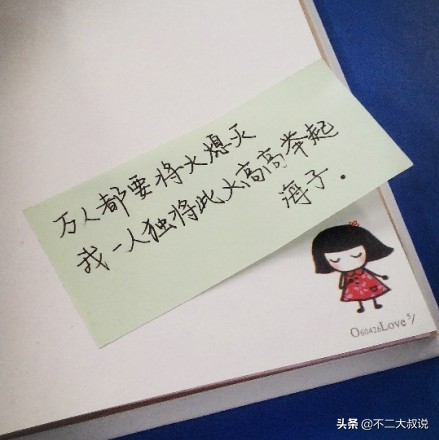 万人都要将火熄灭
我一人独将此火高高举起
海子.
O60426Love 5/
头条 @不二大叔说